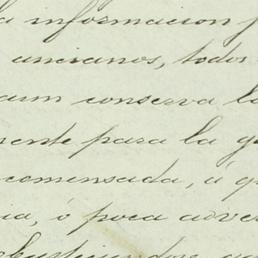 a informacion
ancianos, todos
aun conserva l
mente para la g
comensada, á q
ia, ó poca adve